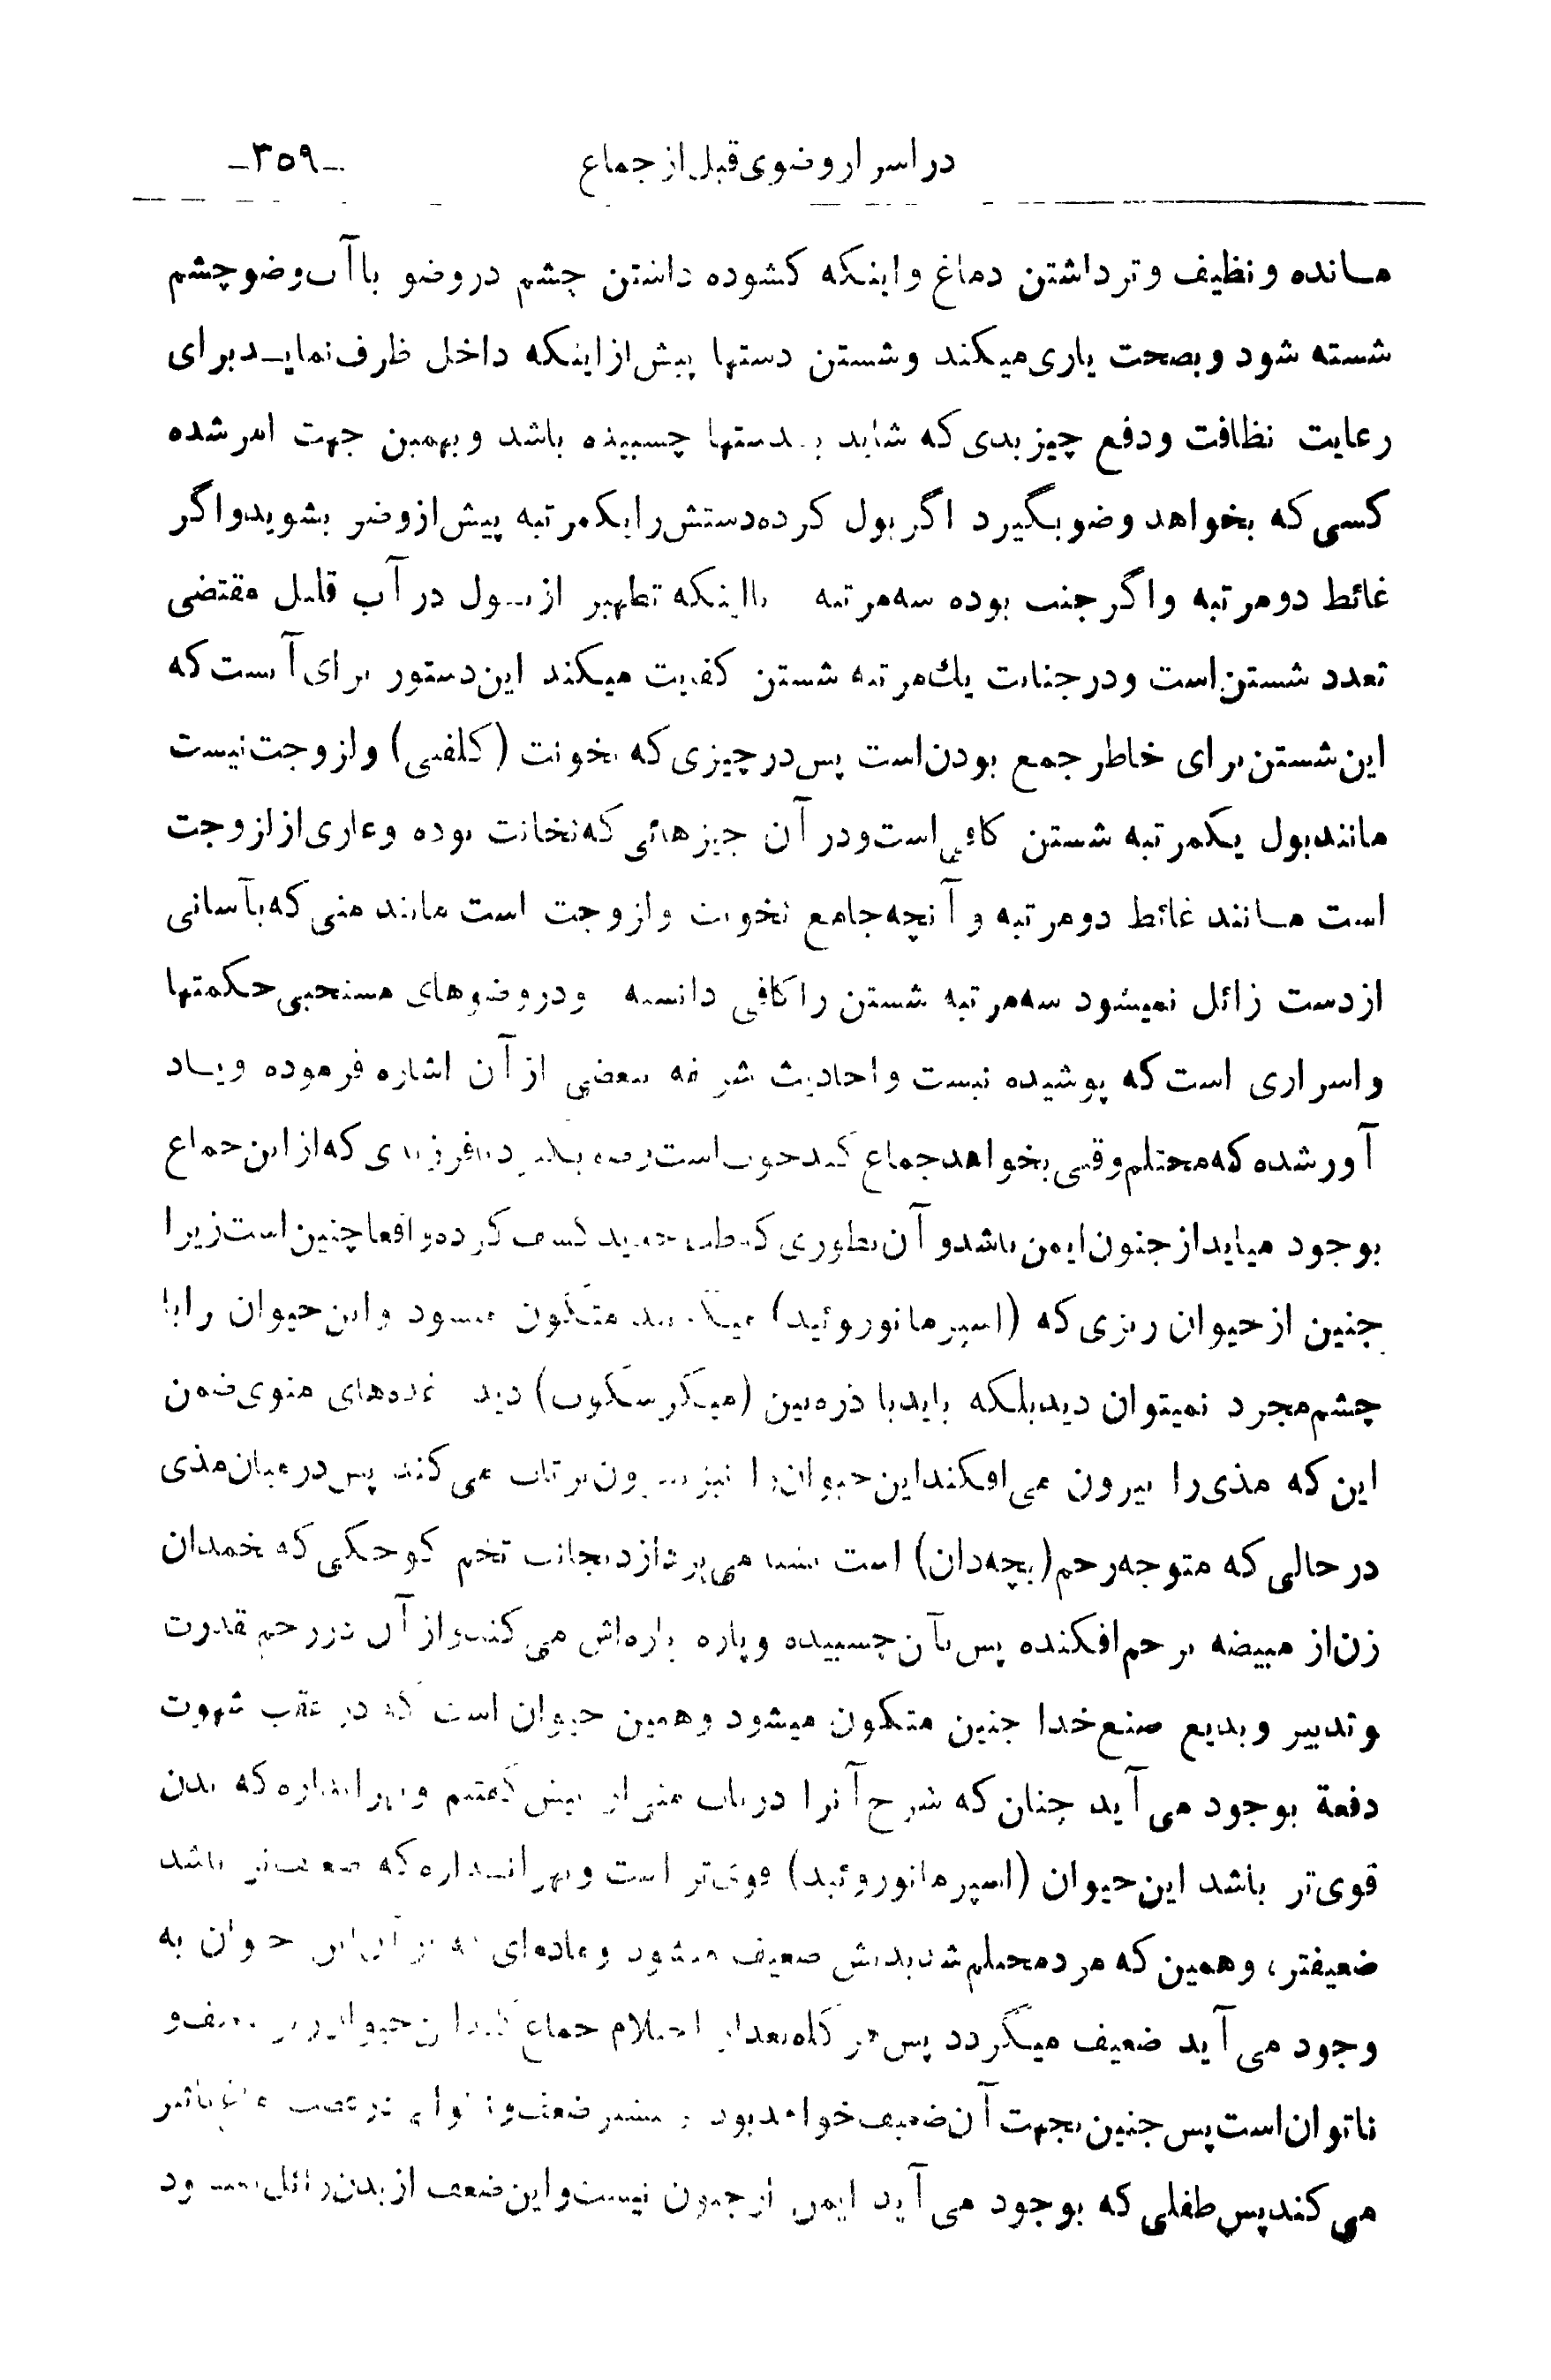 در اسرار وضوی قبل از جماع -۳۵۹-
مانده و نظیف و تر داشتن دماغ و اینکه کشوده داشتن چشم در وضو با آب وضو چشم
شسته شود و بصحت یاری میکند و شستن دستها پیش از اینکه داخل ظرف نماید برای
رعایت نظافت و دفع چیز بدی که شاید بدستها چسبیده باشد و بهمین جهت امر شده
کسی که بخواهد وضو بگیرد اگر بول کرده دستش را یکمرتبه پیش از وضو بشوید و اگر
غائط دو مرتبه و اگر جنب بوده سه مرتبه با اینکه تطهیر از بول در آب قلیل مقتضی
تعدد شستن است و در جنابت یك مرتبه شستن کفایت میکند این دستور برای آنست که
این شستن برای خاطر جمع بودن است پس در چیزی که نخونت (کلفتی) و لزوجت نیست
مانند بول یکمرتبه شستن کافی است و در آن چیزهائی که نخانت بوده و عاری از لزوجت
است مانند غائط دو مرتبه و آنچه جامع نخونت و لزوجت است مانند منی که بآسانی
از دست زائل نمیشود سه مرتبه شستن را کافی دانسته و در وضوهای مستحبی حکمتها
و اسراری است که پوشیده نیست و احادیث شریفه ببعضی از آن اشاره فرموده و یاد
آور شده که محتلم وقتی بخواهد جماع کند خوب است وضو بگیرد تا فرزندی که از این جماع
بوجود میاید از جنون ایمن باشد و آن بطوری که طب جدید کشف کرده واقعا چنین است زیرا
جنین از حیوان ریزی که (اسپرمانوروئید) میگویند متکون میسود و این حیوان را با
چشم مجرد نمیتوان دید بلکه باید با ذره بین (میکرسکوب) دید غده های منوی ضمن
این که مذی را بیرون می افکند این حیوان را نیز بیرون پرتاب می کند پس در میان مذی
در حالی که متوجه رحم (بچه دان) است می پردازد بجانب تخم کوچکی که تخمدان
زن از مبیضه برحم افکنده پس بآن چسبیده و پاره پاره اش می کند و از آن در رحم قدرت
و تدبیر و بدیع صنع خدا جنین متکون میشود و همین حیوان است که در عقب شهوت
دفعة بوجود می آید چنان که شرح آنرا در باب منی از پیش گفتیم و بهر اندازه که بدن
قوی تر باشد این حیوان (اسپرمانوروئید) قوی تر است و بهر اندازه که ضعیف تر باشد
ضعیفتر، و همین که مرد محتلم شد بدنش ضعیف میشود و ماده ای که از آن این حیوان به
وجود می آید ضعیف میگردد پس هر گاه بعد از احتلام جماع کند این حیوان نیز ضعیف و
ناتوان است پس جنین بجهت آن ضعیف خواهد بود و بیشتر ضعف و ناتوانی در عصب تأثیر
می کند پس طفلی که بوجود می آید ایمن از جنون نیست و این ضعف از بدن زائل نمیشود